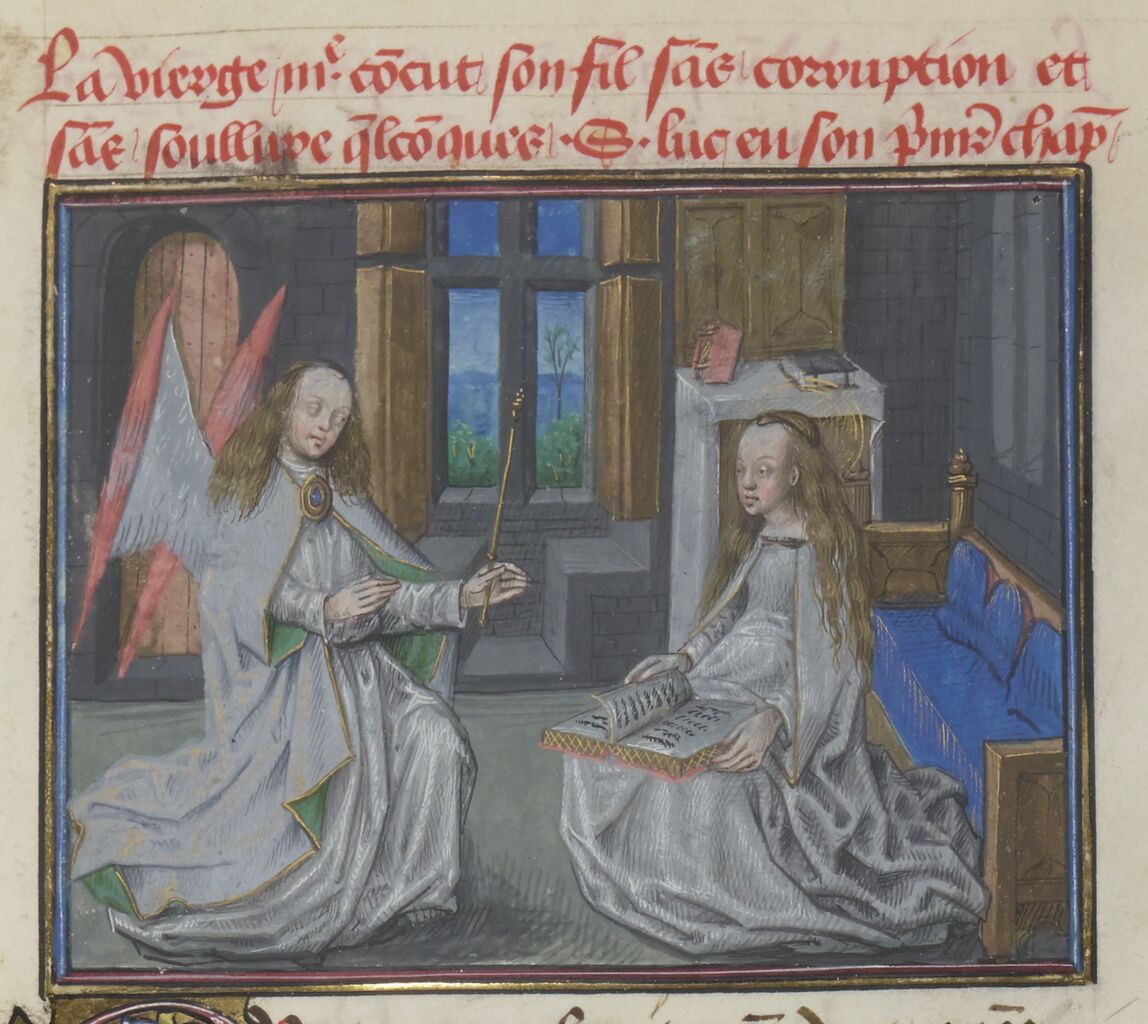 La vierge mr̄e cōcut son fil sās corruption et
sās soullure qlcōques · S · luc en son pmr̄ chap